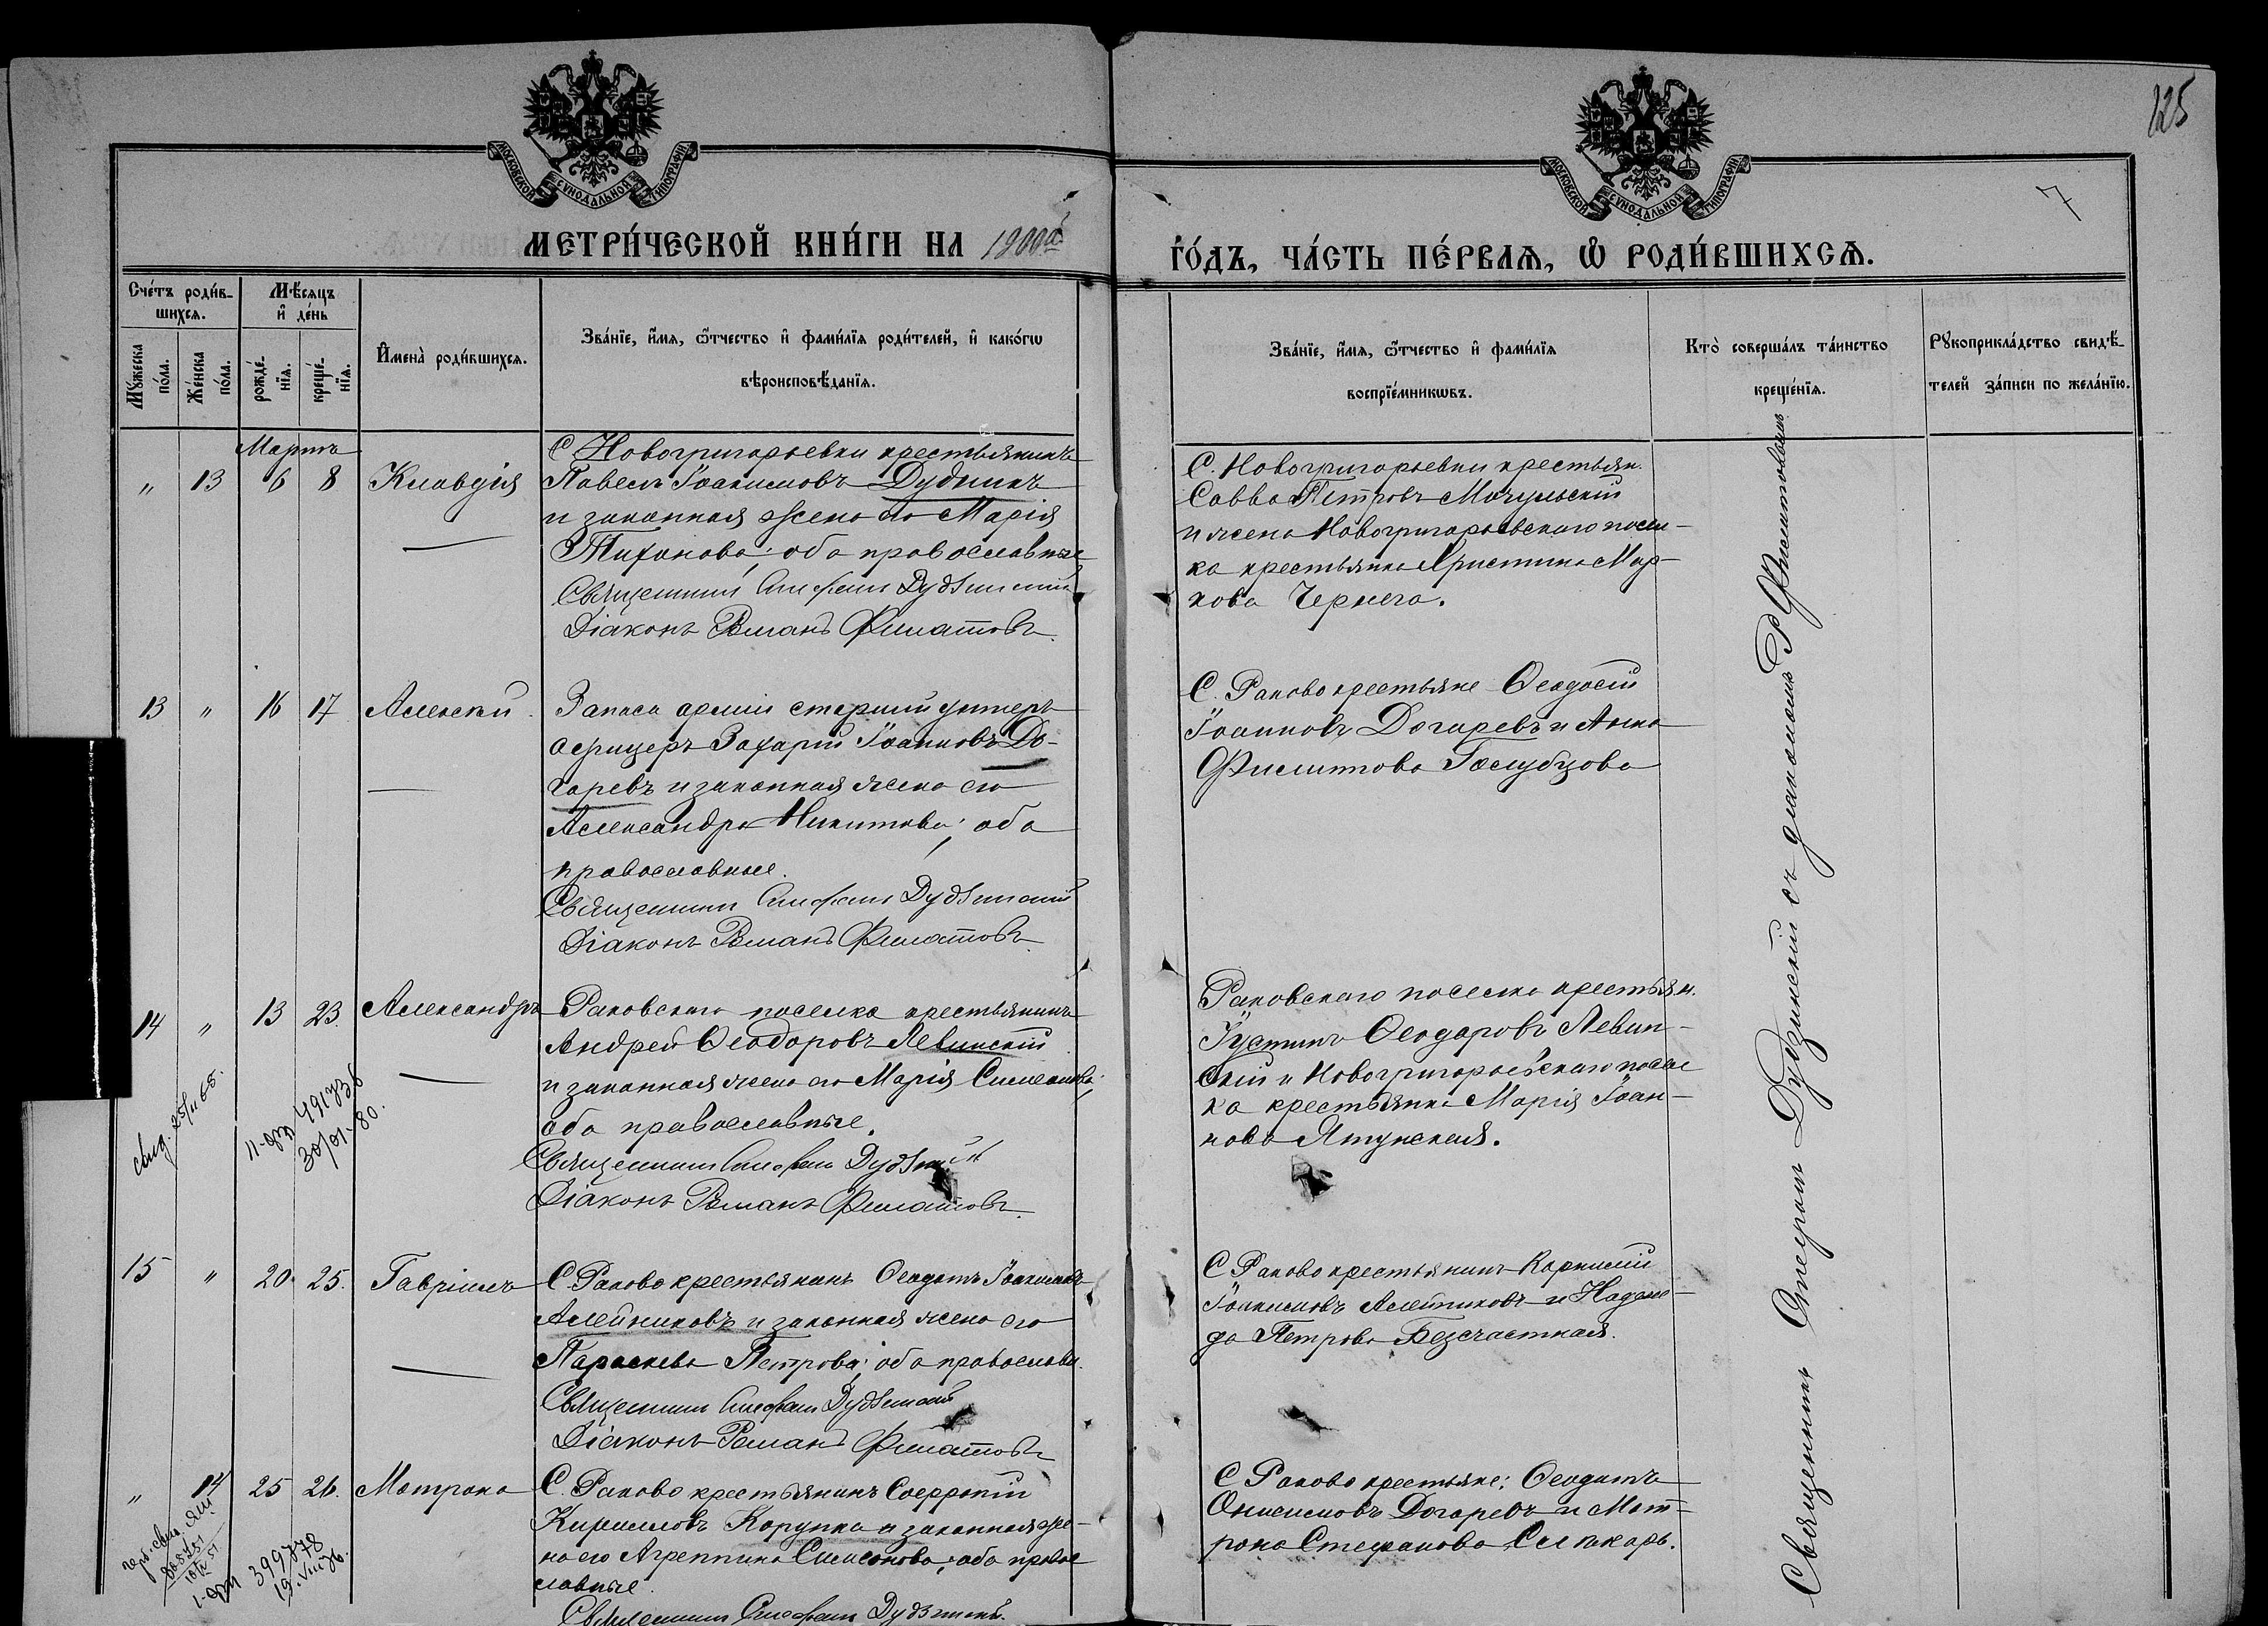 125
7
МОСКОВСКОЙ СУНОДАЛЬНОЙ ТИПОГРАФІИ
МОСКОВСКОЙ СУНОДАЛЬНОЙ ТИПОГРАФІИ
МЕТРИ́ЧЕСКОЙ КНИ́ГИ НА 1900й
ГО́ДЪ, ЧА́СТЬ ПЕ́РВАѦ, Ѡ РОДИ́ВШИХСѦ.
Сче́тъ роди́в-
шихсѧ.
Мꙋ́жеска по́ла.
Же́нска по́ла.
Мѣ́сѧцъ
и҆ де́нь
рожде́-
нїѧ.
креще́-
нїѧ.
И҆мена̀ роди́вшихсѧ.
Зва́нїе, и҆́мѧ, ѿ́тчество и҆ фами́лїѧ роди́телей, и҆ како́гѡ
вѣроисповѣ́данїѧ.
Зва́нїе, и҆́мѧ, ѿ́тчество и҆ фами́лїѧ
воспрїе́мникѡвъ.
Кто̀ соверша́лъ та́инство
креще́нїѧ.
Рꙋкоприкла́дство свидѣ́-
телей за́писи по жела́нїю.
Мартъ
" 13 6 8 Клавдія
С. Новогригорьевки крестьянинъ
Павелъ Іоакимовъ Дудникъ
и законная жена его Марія
Тихонова; оба православные
Священникъ Стефанъ Дудзинскій
Діаконъ Романъ Филатовъ
С. Новогригорьевки крестьян.
Савва Петровъ Мачульскій
и жена Новогригорьевскаго посел-
ка крестьянка Христина Мар-
кова Чернега.
13 " 16 17 Алексѣй
Запаса арміи старшій унтеръ
офицеръ Захарій Іоанновъ До-
гаревъ и законная жена его
Александра Никитова; оба
православные.
Священникъ Стефанъ Дудзинскій
Діаконъ Романъ Филатовъ
С. Раково крестьяне Ѳеодосій
Іоанновъ Догаревъ и Анна
Филиппова Голубцова
14 " 13 23. Александръ
Раковскаго поселка крестьянинъ
Андрей Ѳеодоровъ Левинскій
и законная жена его Марія Симеонова;
оба православные.
Священникъ Стефанъ Дудзинскій
Діаконъ Романъ Филатовъ.
Раковскаго поселка крестьян.
Іустинъ Ѳеодоровъ Левин-
скій и Новогригорьевскаго посел
ка крестьянка Марія Іоан-
нова Ятунская.
491736
30/01-80.
15 " 20 25. Гавріилъ
С Раково крестьянинъ Ѳеодотъ Іоакимовъ
Алейниковъ и законная жена его
Параскева Петрова; оба православн.
Священникъ Стефанъ Дудзинскій
Діаконъ Романъ Филатовъ
С Раково крестьянинъ Корнилій
Іоакимовъ Алейниковъ и Надеж-
да Петрова Безсчастная.
" 14 25 26. Матрона
С. Раково крестьянинъ Софроній
Кирилловъ Корупка и законная же-
на его Агреппина Симеонова; оба право
славные.
Священникъ Стефанъ Дудзинскій.
С Раково крестьяне: Ѳеодотъ
Онисимовъ Догаревъ и Мат-
рона Стефанова Слюкарь.
399778
19.VIII 76.
Священникъ Стефанъ Дудзинскій съ діакономъ Р Филатовымъ